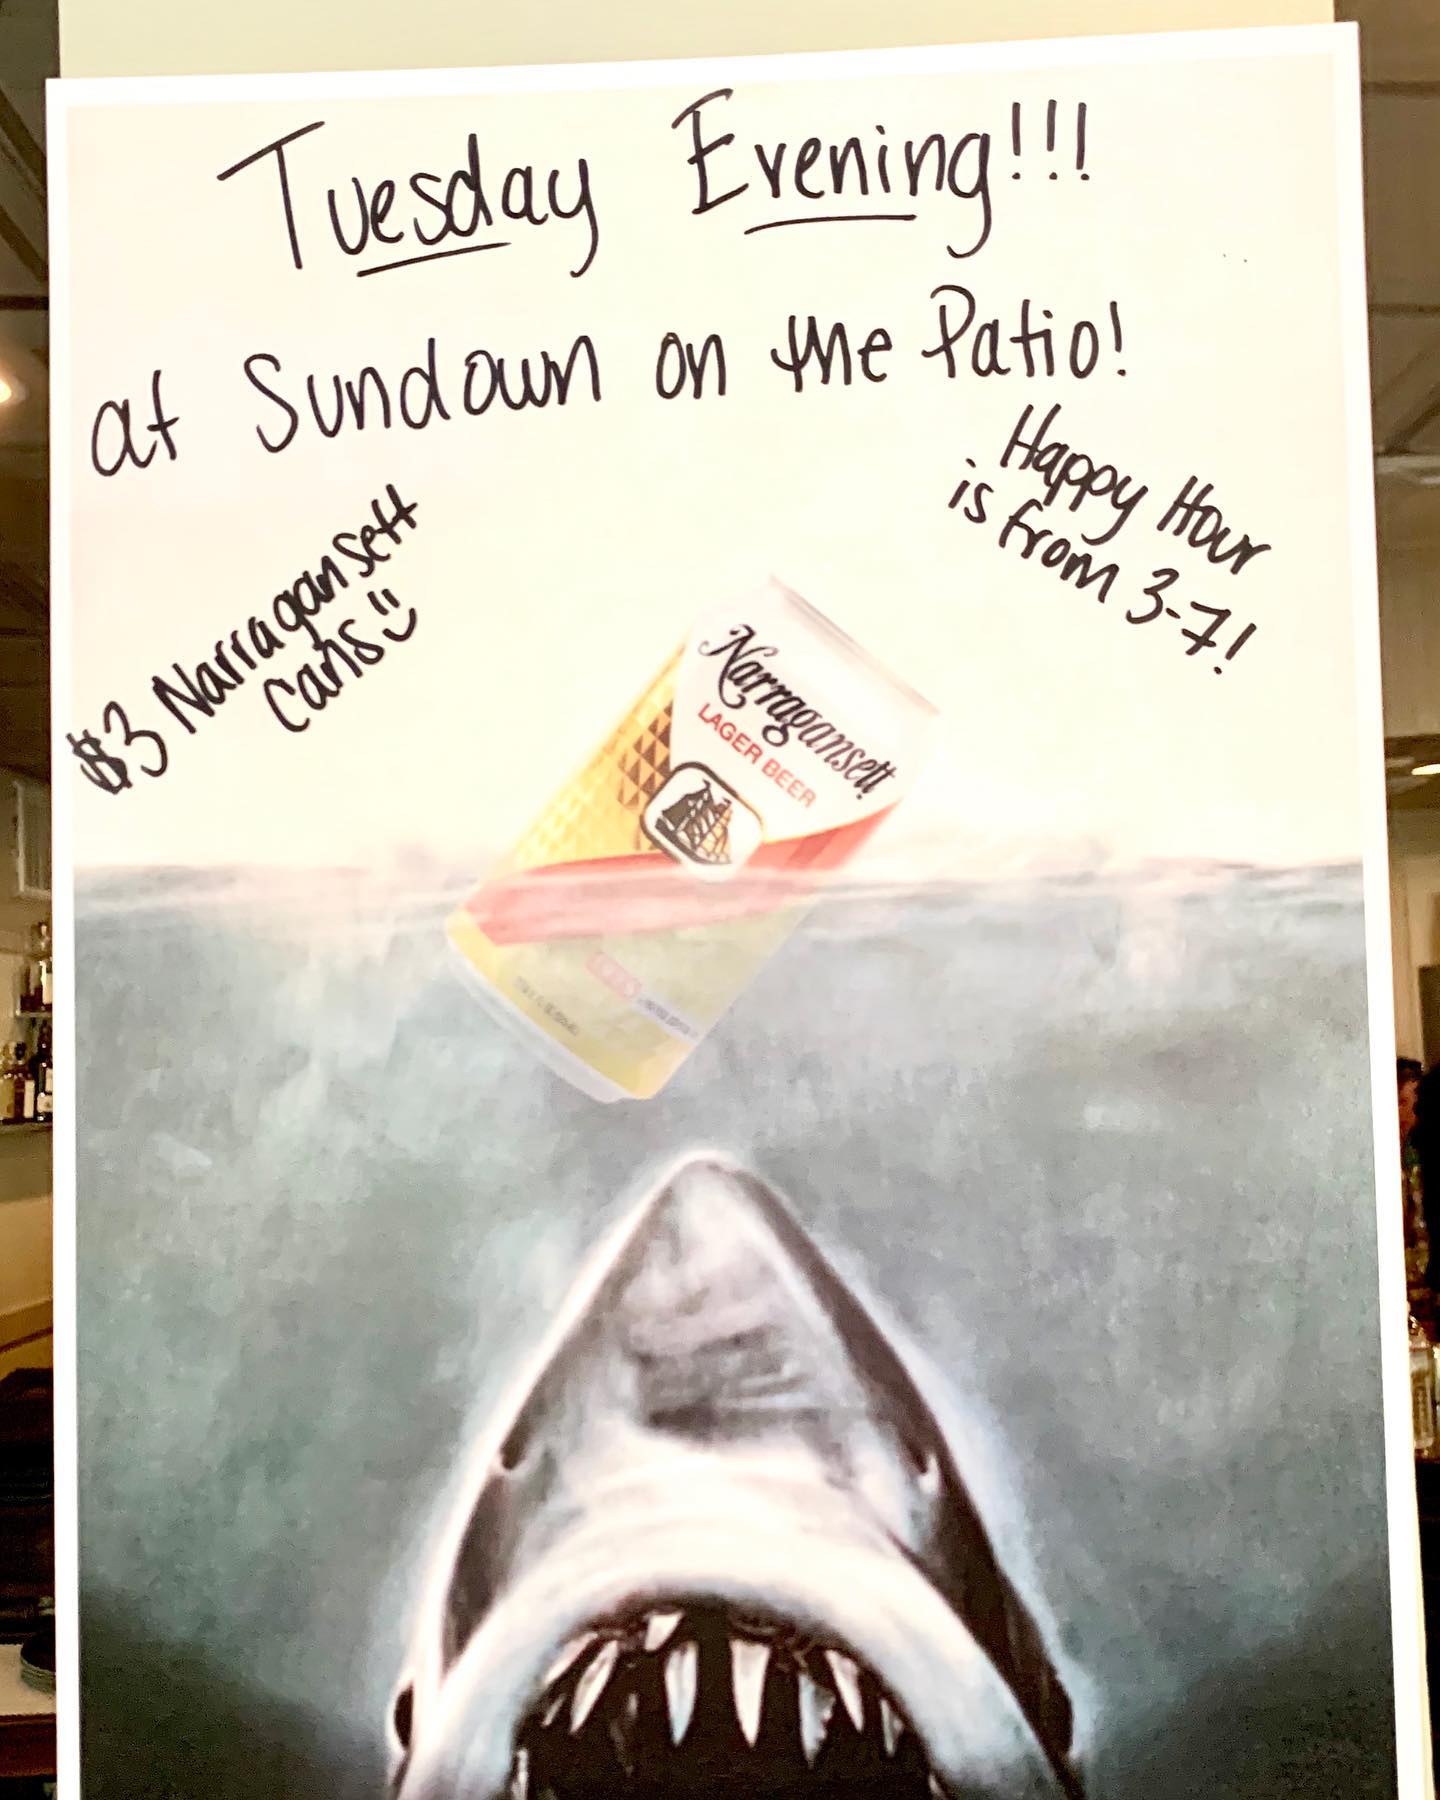 Tuesday Evening!!!
at Sundown on the Patio!
Happy Hour
is from 3-7!
$3 Narragansett
Cans
Narragansett
LAGER BEER